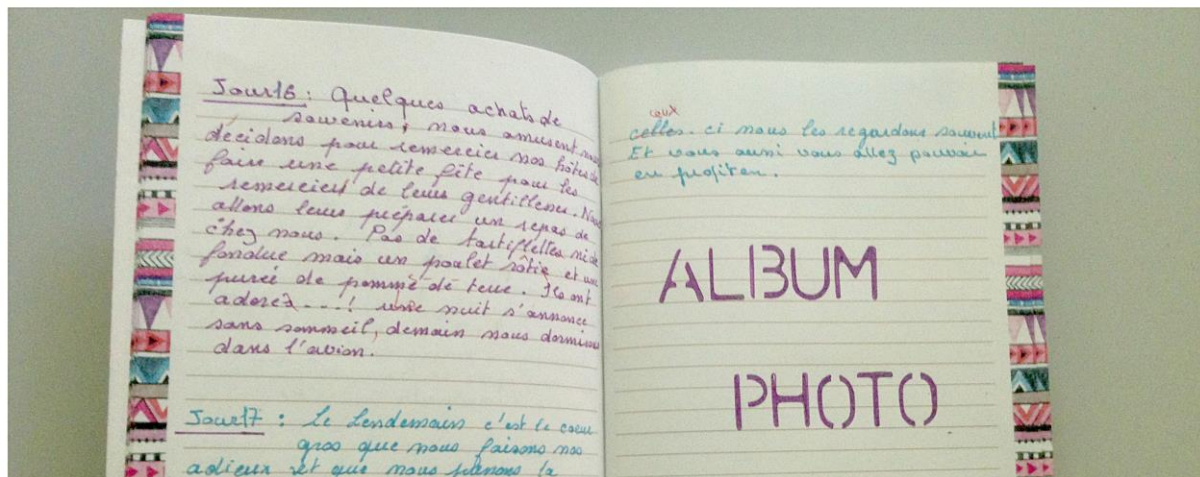 Jour 16 : Quelques achats de
souvenirs, nous amusent nous
décidons pour remercier nos hôtes de
faire une petite fête pour les
remercier de leurs gentillesses. Nous
allons leurs préparer un repas de
chez nous. Pas de tartiflettes ni de
fondue mais un poulet rôtie et une
purée de pomme de terre. Ils ont
adorez ---! une nuit s'annonce
sans sommeil, demain nous dormirons
dans l'avion.
Jour 17 : Le lendemain c'est le coeur
gros que nous faisons nos
adieux et que nous prenons la
ceux
celles-ci nous les regardons souvent
Et vous aussi vous allez pouvoir
en profiter.
ALBUM
PHOTO